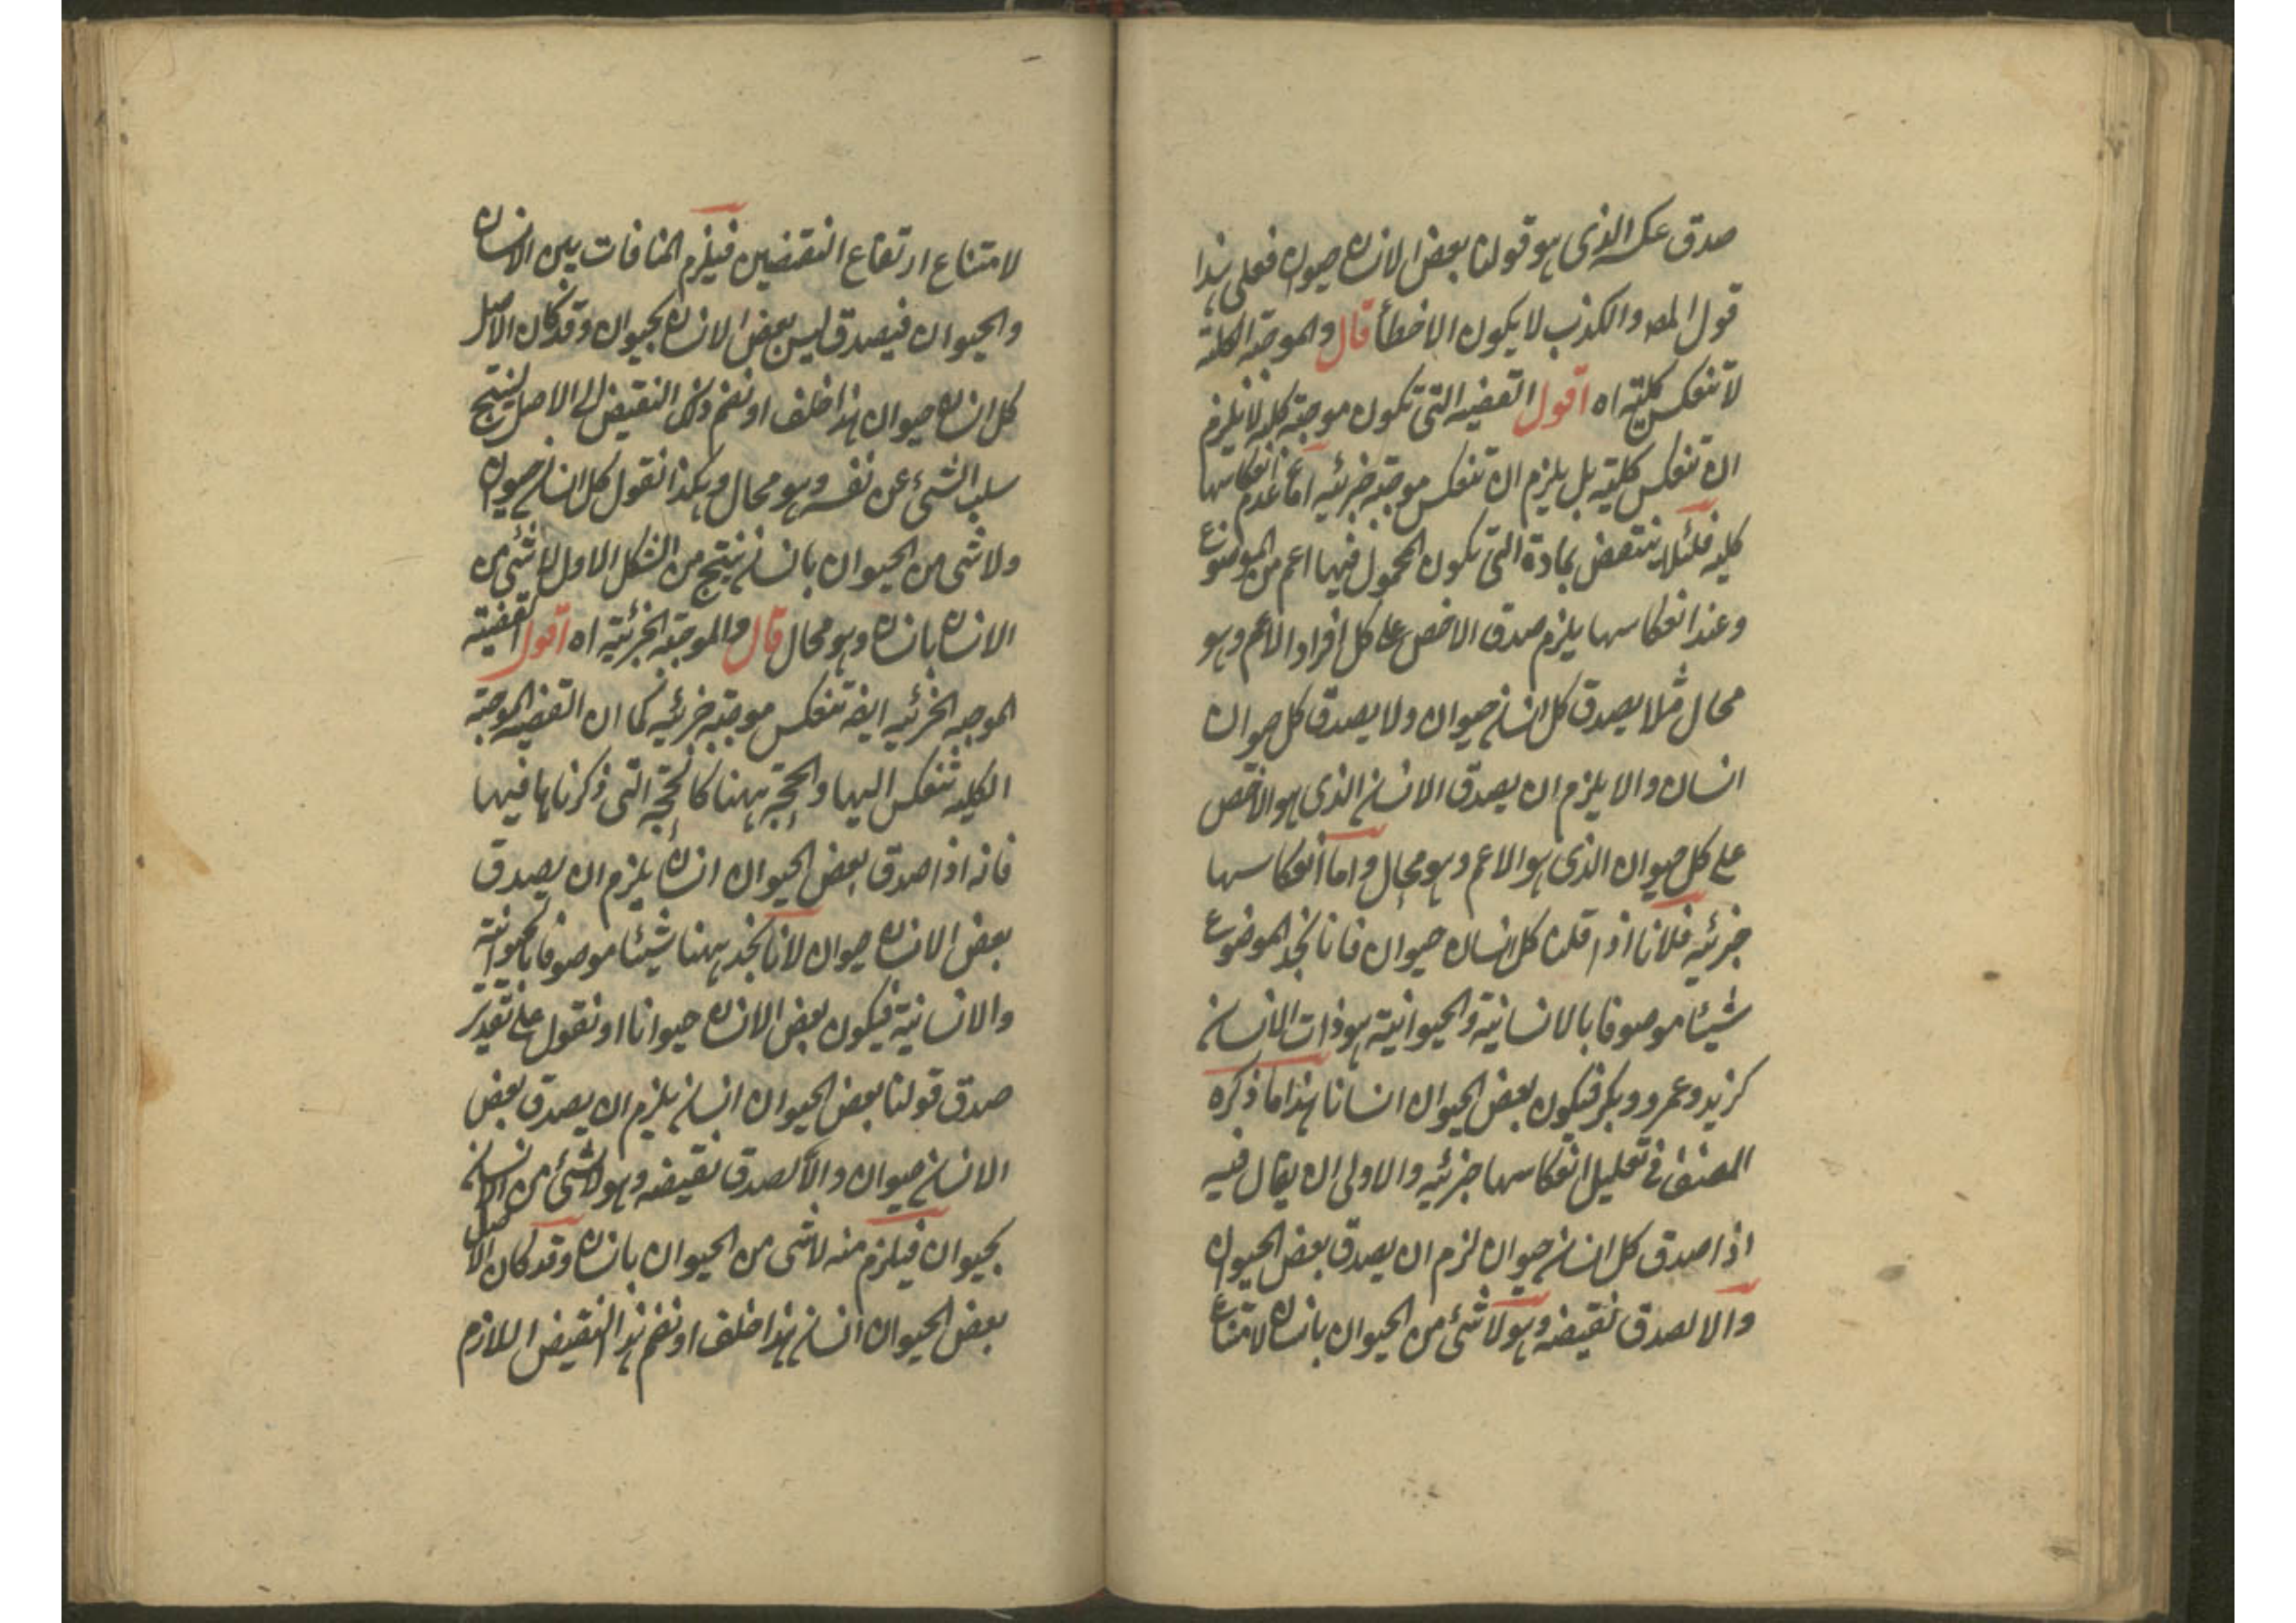 صدق عكسه الذى هو قولنا بعض الانسان حيوان فعلى هذا
قول المصـ والكذب لا يكون الا خطأ قال والموجبة الكلية
لا تنعكس كلية اه اقول القضيه التى تكون موجبة كليه لا يلزم
ان تنعكس كلية بل يلزم ان تنعكس موجبة جزئيه اما عدم انعكاسها
كليه فلئلا ينتقض بمادة التى يكون المحمول فيها اعم من الموضوع
وعند انعكاسها يلزم صدق الاخص على كل افراد الاعم وهو
محال مثلا يصدق كل انسان حيوان ولا يصدق كل حيوان
انسان والا يلزم ان يصدق الانسان الذى هو الاخص
على كل حيوان الذى هو الاعم وهو محال واما انعكاسها
جزئيه فلانا اذا قلنا كل انسان حيوان فانا نجد الموضوع
شيئا موصوفا بالانسانية والحيوانية هو ذات الانسان
كزيد وعمرو وبكر فيكون بعض الحيوان انسانا هذا ما ذكره
المصنف فى تعليل انعكاسها جزئيه والاولى ان يقال فيه
اذا صدق كل انسان حيوان لزم ان يصدق بعض الحيوان
والا لصدق نقيضه وهو لا شئ من الحيوان بانسان لامتناع
لامتناع ارتفاع النقيضين فيلزم المنافات بين الانسان
والحيوان فيصدق ليس بعض الانسان بحيوان وقد كان الاصل
كل انسان حيوان هذا خلف او نضم ذلك النقيض الى الاصل لينتج
سلب الشئ عن نفسه وهو محال وهكذا نقول كل انسان حيوان
ولا شى من الحيوان بانسان ينتج من الشكل الاول لا شئ من
الانسان بانسان وهو محال قال والموجبة الجزئية اه اقول القضية
الموجبه الجزئيه ايضه تنعكس موجبة جزئيه كما ان القضيه الموجبة
الكليه تنعكس اليها والحجة ههنا كالحجة التى ذكرناها فيها
فانه اذا صدق بعض الحيوان انسان يلزم ان يصدق
بعض الانسان حيوان لانا نجد ههنا شيئا موصوفا بالحيوانية
والانسانية فيكون بعض الانسان حيوانا او نقول على تقدير
صدق قولنا بعض الحيوان انسان يلزم ان يصدق بعض
الانسان حيوان والا لصدق نقيضه وهو لا شئ من الانسان
بحيوان فيلزم منه لا شى من الحيوان بانسان وقد كان الاصل
بعض الحيوان انسان هذا خلف او نضم هذا النقيض اللازم